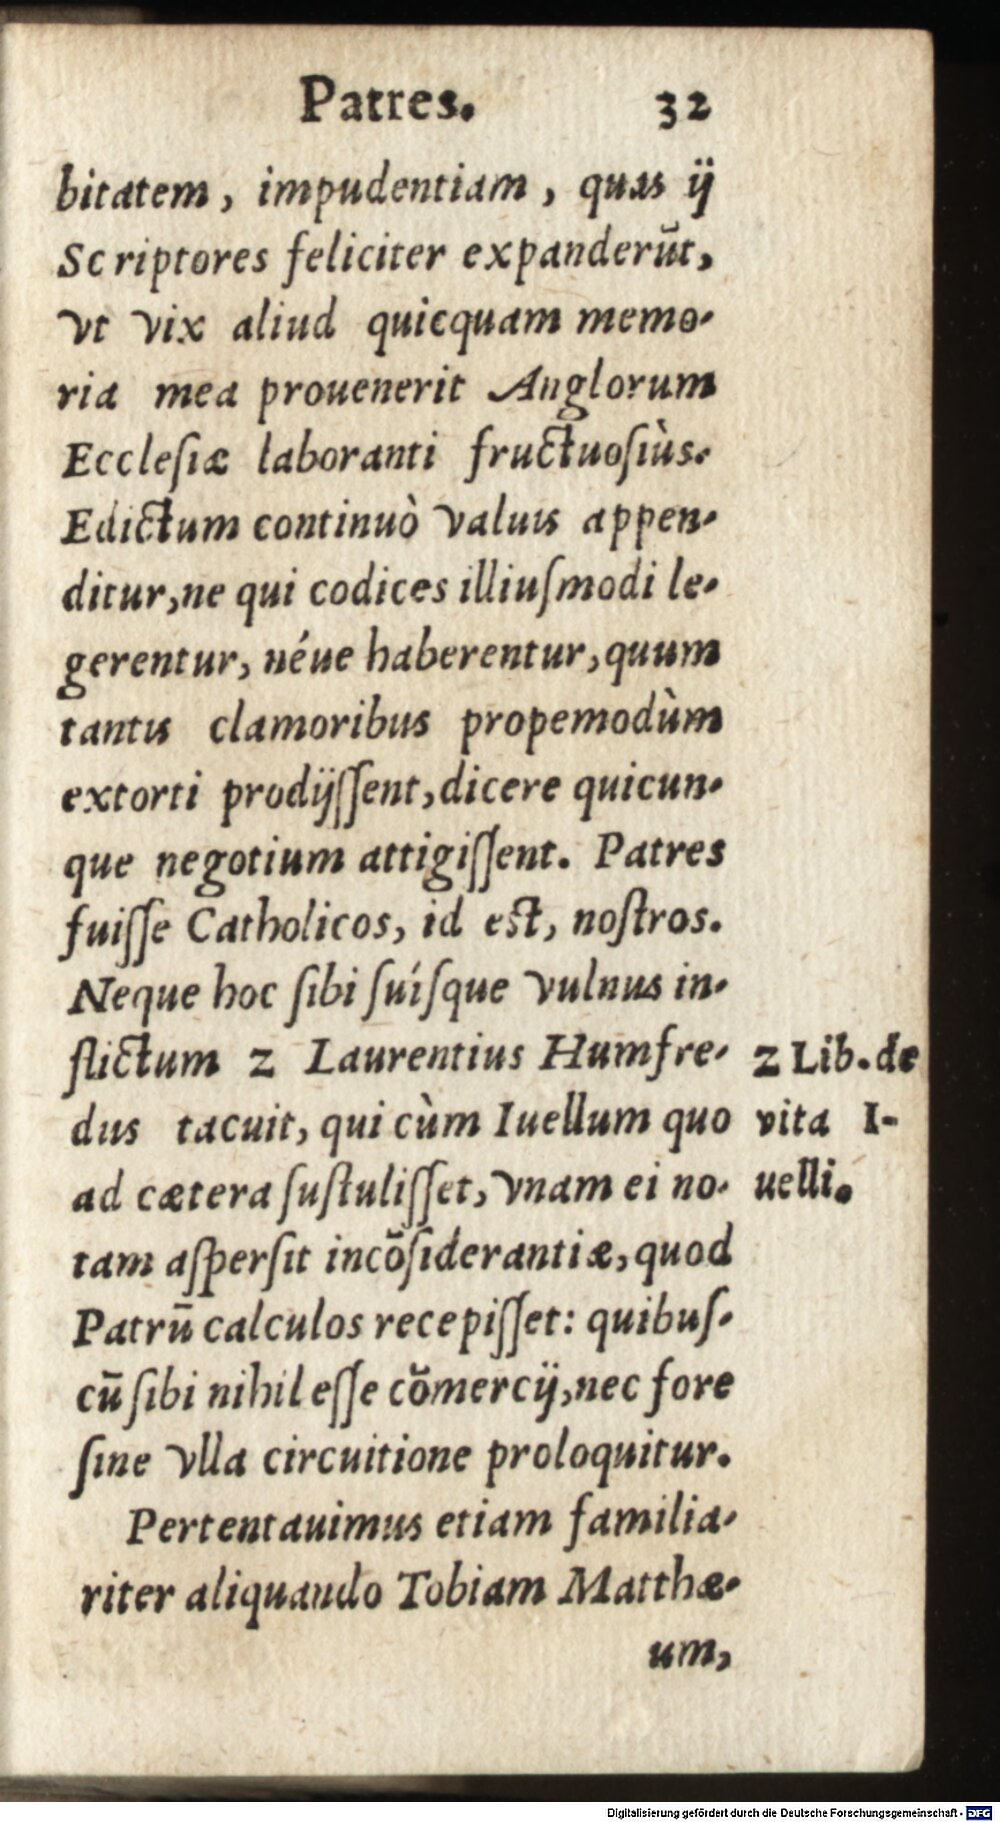 Patres. 32
bitatem, impudentiam, quas ij
Scriptores feliciter expanderũt,
vt vix aliud quicquam memo-
ria mea prouenerit Anglorum
Eccleſiæ laboranti fructuoſiùs.
Edictum continuò valuis appen-
ditur, ne qui codices illiuſmodi le-
gerentur, néue haberentur, quum
tantis clamoribus propemodùm
extorti prodijſſent, dicere quicun-
que negotium attigiſſent. Patres
fuiſſe Catholicos, id eſt, noſtros.
Neque hoc ſibi ſuíſque vulnus in-
flictum z Laurentius Humfre-
dus tacuit, qui cùm Iuellum quo
ad cætera ſuſtuliſſet, vnam ei no-
tam aſperſit incõſiderantiæ, quod
Patrũ calculos recepiſſet: quibuſ-
cũ ſibi nihil eſſe cõmercij, nec fore
ſine vlla circuitione proloquitur.
Pertentauimus etiam familia-
riter aliquando Tobiam Matthæ-
um,
z Lib. de
vita I-
uelli.
Digitalisierung gefördert durch die Deutsche Forschungsgemeinschaft - DFG